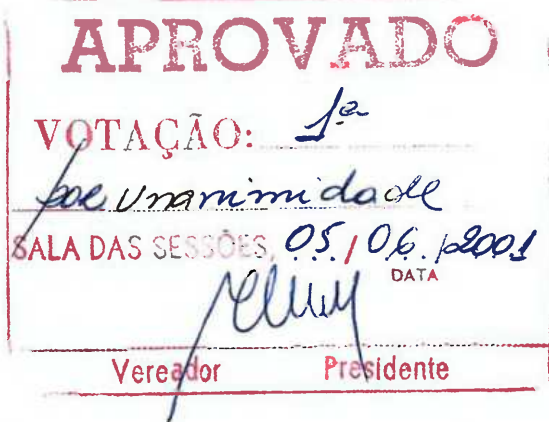 APROVADO
VOTAÇÃO: 1ª
por unanimidade
SALA DAS SESSÕES, 05 / 06 / 2001
DATA
Vereador Presidente